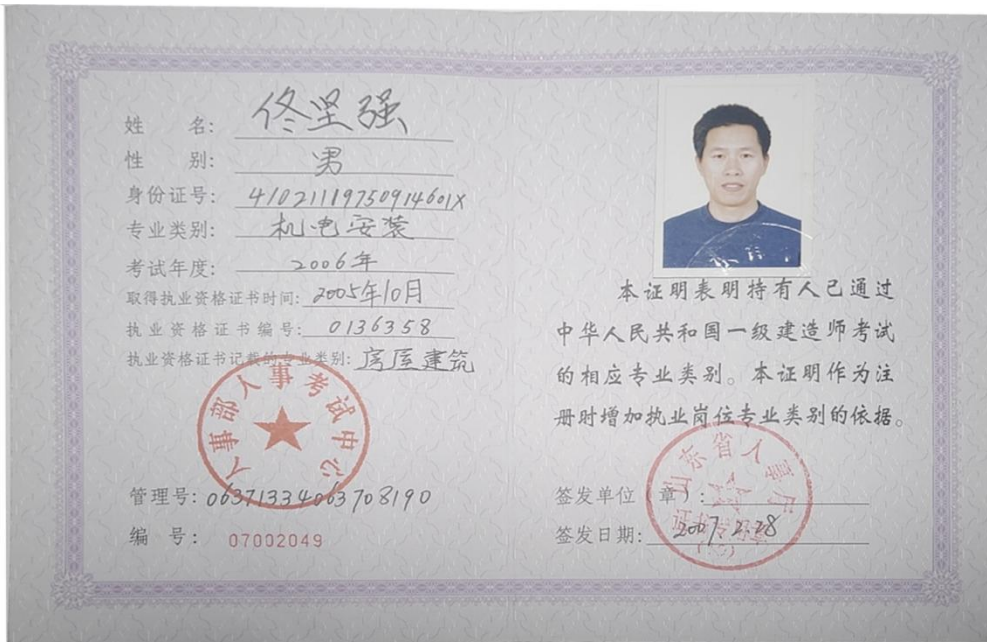 姓 名: 佟坚强
性 别: 男
身份证号: 41021119750914601X
专业类别: 机电安装
考试年度: 2006年
取得执业资格证书时间: 2005年10月
执业资格证书编号: 0136358
执业资格证书记载的专业类别: 房屋建筑
人事部人事考试中心
管理号: 06371334063708190
编 号: 07002049
本证明表明持有人已通过
中华人民共和国一级建造师考试
的相应专业类别。本证明作为注
册时增加执业岗位专业类别的依据。
山东省人事厅
签发单位(章):
证书专用章
签发日期: 2007.2.28